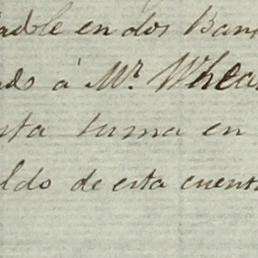 dable en dos Ban
ado á Mr. Whea
sta suma en
ldo de esta cuent